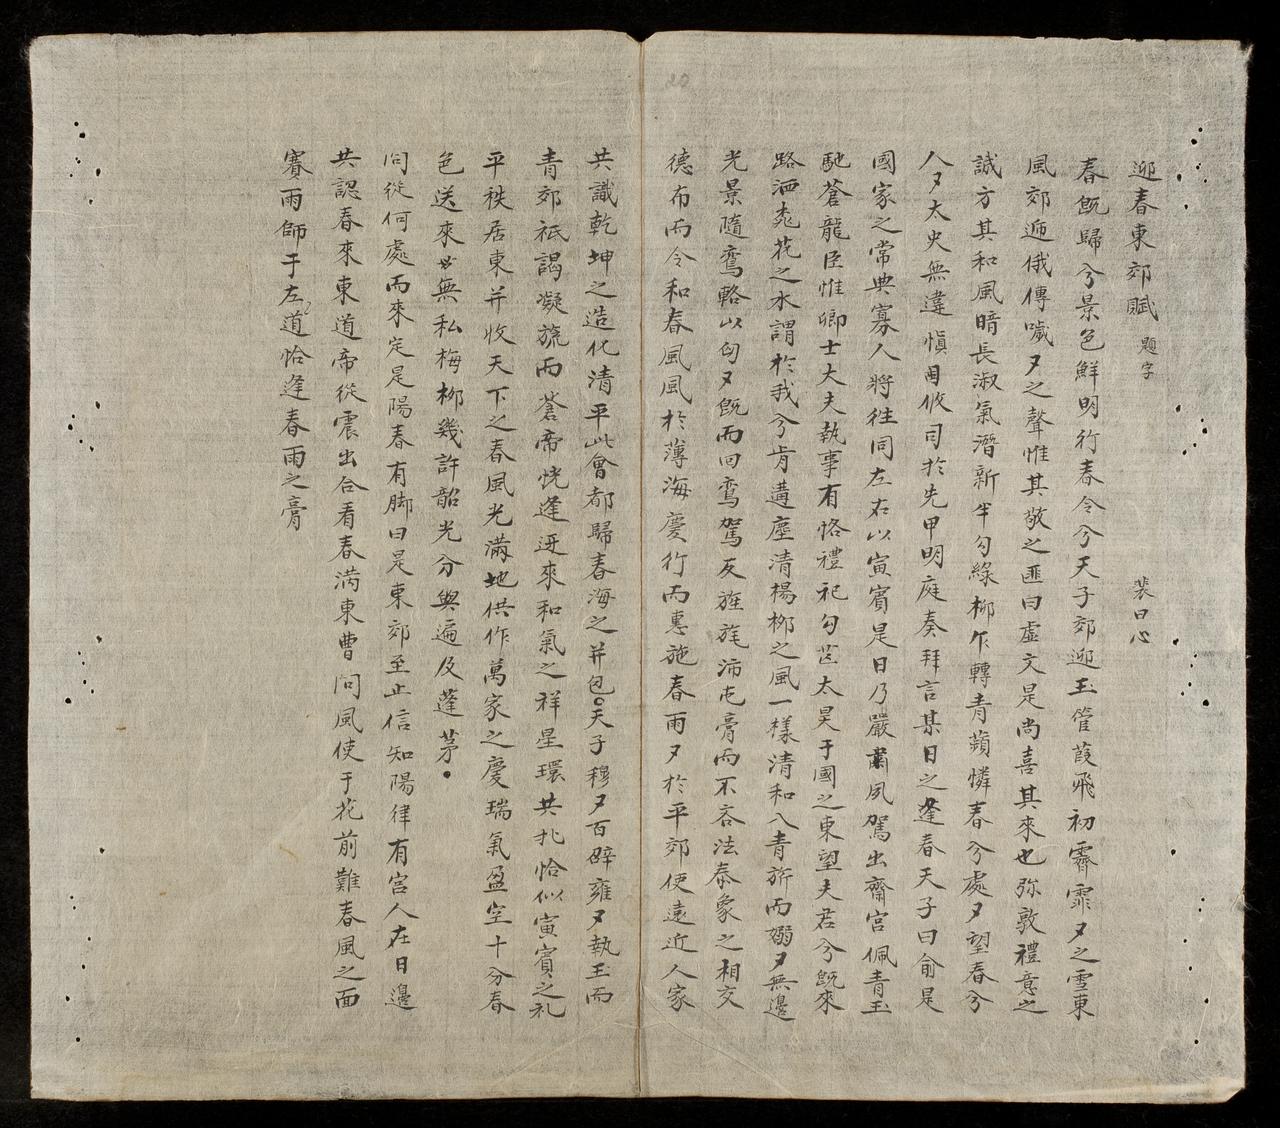 迎春東郊賦 題字 裴日心
春旣歸兮景色鮮明行春令兮天子郊迎玉管葭飛初霽霏〻之雪東
風郊遞俄傳噦〻之聲惟其敬之匪曰虛文是尚喜其來也弥敦禮意之
誠方其和風暗長淑氣潛新半勾綠柳乍轉青蘋憐春兮處〻望春兮
人〻太史無違愼用攸司於先甲明庭奏拜言某日之逢春天子曰俞是
國家之常典寡人將徃同左右以寅賓是日乃嚴肅夙駕出齋宮佩青玉
馳蒼龍臣惟卿士大夫執事有恪禮祀勾芒太昊于國之東望夫君兮旣來
路洒桃花之水謂於我兮肯遘塵清楊柳之風一樣清和八青旂而嫋〻無邊
光景隨鸞輅以匈〻旣而回鸞駕反旌旄沛屯膏而不吝法泰象之相交
德布而令和春風風於薄海慶行而惠施春雨〻於平郊使遠近人家
共識乾坤之造化清平此會都歸春海之并包天子穆〻百辟雍〻執玉而
青郊祇謁凝旒而蒼帝恍逢迓來和氣之祥星環共北恰似寅賓之礼
平秩居東并收天下之春風光滿地供作萬家之慶瑞氣盈空十分春
色送來也無私梅柳幾許韶光分與遍及蓬茅
问從何處而來定是陽春有脚曰是東郊至止信知陽律有宮人在日邊
共認春來東道帝從震出合看春滿東曹问風使于花前難春風之面
賽雨師于左道恰逢春雨之膏
20